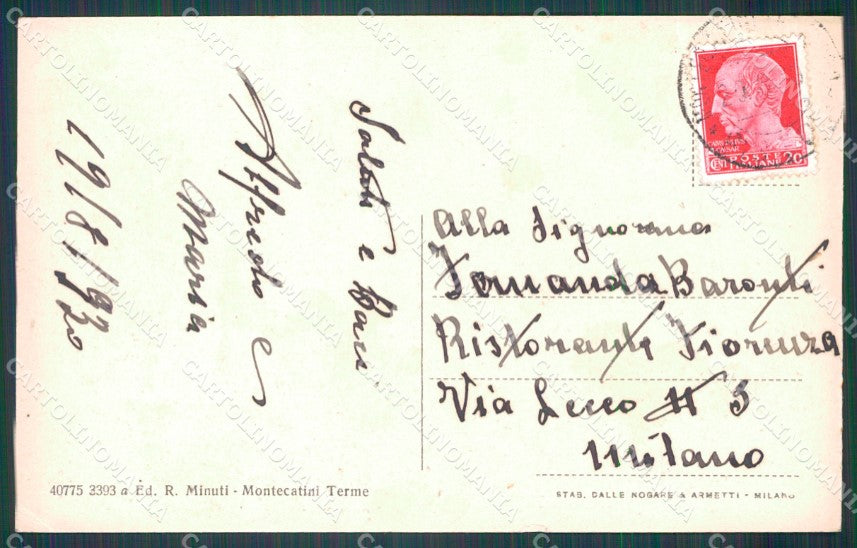 Saluti e Baci
Alfredo e
Maria
19/8/930
Alla Signorina
Fernanda Baronti
Ristorante Fiorenza
Via Lecco N 5
Milano
40775 3393 a Ed. R. Minuti - Montecatini Terme
STAB. DALLE NOGARE & ARMETTI - MILANO
POSTE
ITALIANE
CENT 20
CARTOLINOMANIA